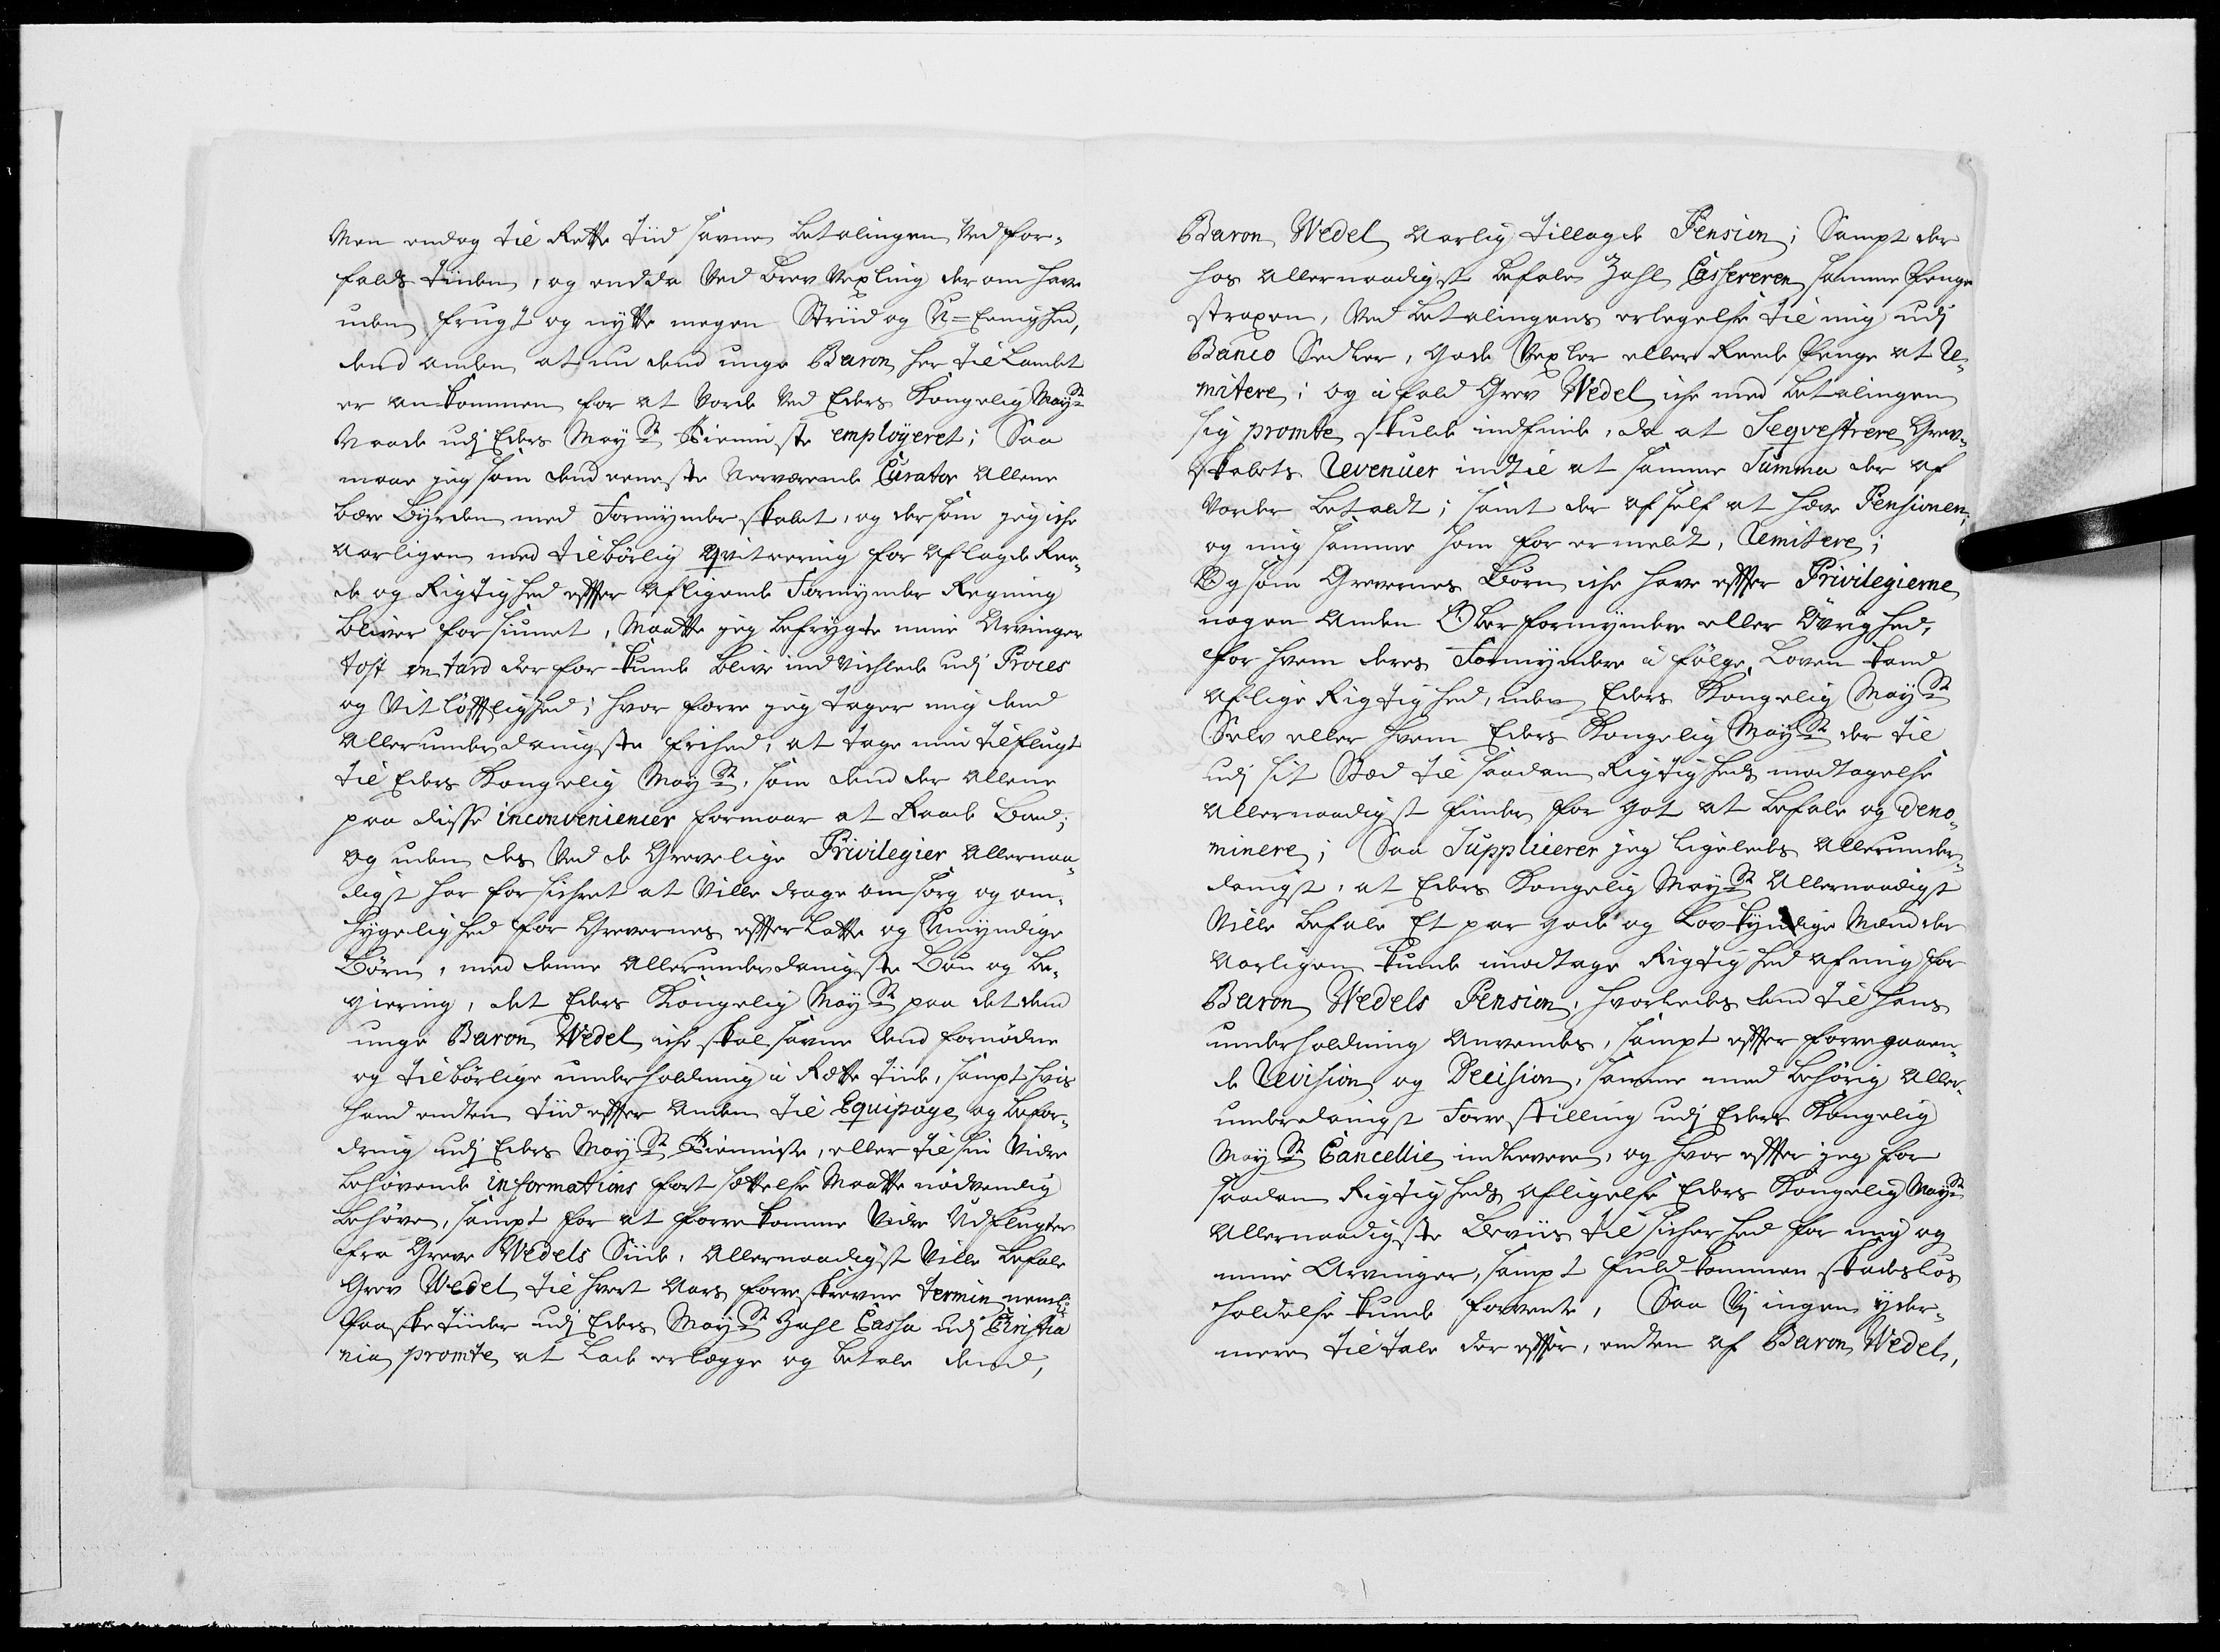 Men endog til Rette tiid savne betalingen ved for¬
falds tiiden, og endda ved brev vexling der om have
uden frugt og nytte megen Striid og U=Eenighed,
dend anden at nu dend unge Baron her til Landet
er ankommen for at vorde ved Eders Kongelig Mayst
Naade udj Eders Mayst Tienniste employeret; Saa
maae jeg som dend eeneste Nerværende Curator allene
bære Byrden med Formynderskabet, og dersom jeg iche
aarligen med tilbørlig qvitering for aflagde Ree¬
de og Rigtighed effter afligende Formynder Regning
bliver forsiunet, Maatte jeg befrygte mine Arvinger
tost on tard der for kunde blive indvichlede udj Proces
og Vitløfftighed; hvor forre jeg tager mig dend
allerunderdanigste friehed, at tage min tilflugt
til Eders Kongelig Mayst, som dend der allene
paa disse inconveniencier formaar at Raade Bood;
og uden des ved de Grevelige Privilegier allernaa¬
digst har forsichret at ville drage omsorg og om¬
hygelighed for Grevernes effterlatte og Umyndige
Børn, med denne allerunderdanigste Bøn og be¬
giering, det Eders Kongelig Mayst paa det dend
unge Baron Wedel iche skal savne dend fornødne
og tilbørlige underholdning i Rette tiide, sampt hvis
hand endten tiid effter anden til Equipage og befor¬
dring udj Eders Mayst Tienniste, eller til sin vidre
behøvende informations fortsættelse Maatte nødvendig
behøve, sampt for at forrekomme vidre Udflugter
fra Greve Wedels Siide, allernaadigst ville befale
Grev Wedel til hvert Aars forreskrevne termin nemlig
Paaske tiider udj Eders Mayst Zahl Cassa udj Christia
nia promte at lade erlegge og betale dend,
Baron Wedel aarlig tillagde Pension; Sampt der
hos allernaadigst befale Zahl Cassereren samme Penge
straxen, ved betalingens erlegelse til mig udj
Banco Sedler, gode Vexler eller Reede Penge at Re¬
mitere; og i fald Grev Wedel iche med betalingen
sig promte skulde indfinde, da at Seqvestrere Grev¬
skabets Revenuer indtil at samme Summa der af
vorder betaldt; samt der af self at hæve Pensionen,
og mig samme som for ermeldt, Remitere;
Og som Grevernes Børn iche have effter Privilegierne
nogen anden Ober formyndere eller Øvrighed,
for hvem deres Formyndere i følge Loven kand
aflige Rigtighed, uden Eders Kongelig Mayst
Selv eller hvem Eders Kongelig Mayst der til
udj sit Sted til saadan Rigtigheds modtagelse
allernaadigst finder for got at befale og deno¬
minere; Saa Supplicerer jeg ligeledes allerunder¬
danigst, at Eders Kongelig Mayst allernaadigst
ville befale Et par gode og Lovkyndige Mænd der
aarligen kunde imodtage Rigtighed af mig for
Baron Wedels Pension, hvorledes dend til hans
underholdning anvendes, sampt effter forregaaen¬
de Revision og Decision, samme med behørig aller¬
underdanigst Forrestilling udj Eders Kongelig
Mayst Cancellie indlevere, og hvor effter jeg for
saadan Rigtigheds afligelse Eders Kongelig Mayst
allernaadigste Beviis til sicherhed for mig og
mine Arvinger, sampt fuldkommen skadesløs
holdelse kunde forvente, Saa Vj ingen yder¬
mere tiltale der effter, endten af Baron Wedel,